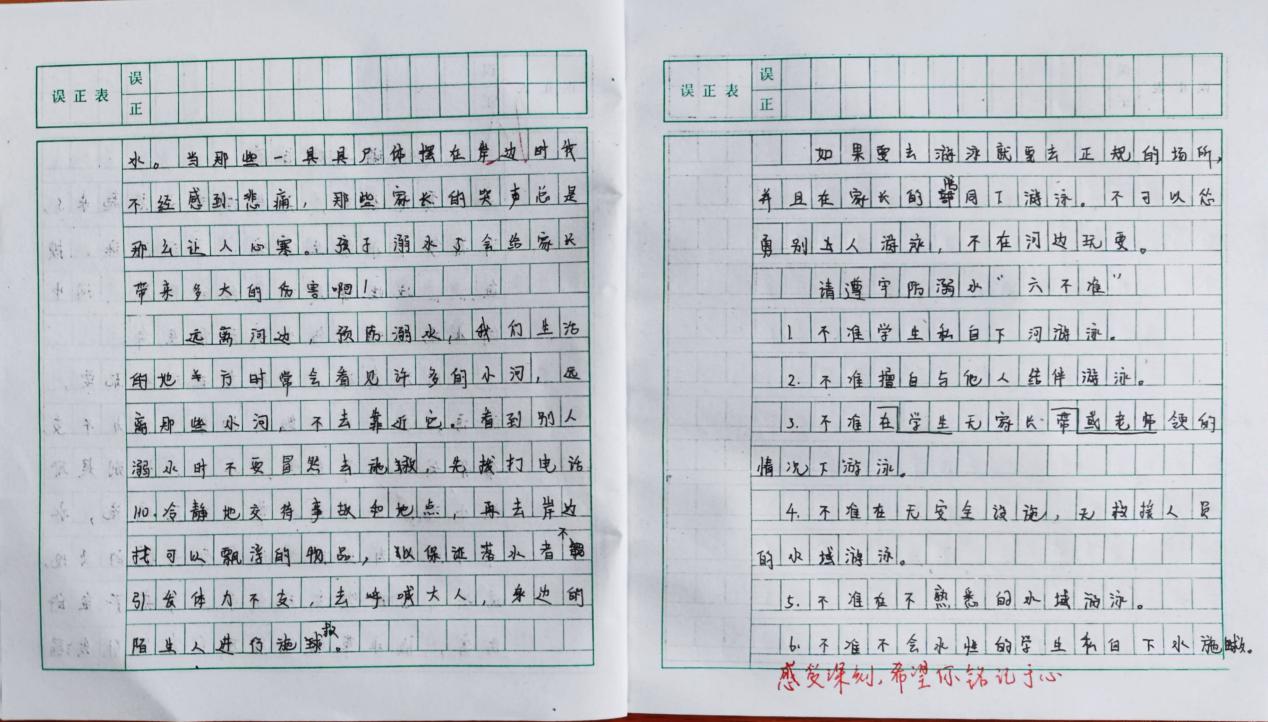 误正表
误
正
水。当那些一具具尸体摆在岸边时我
不经感到悲痛，那些家长的哭声总是
那么让人心寒。孩子溺水了会给家长
带来多大的伤害啊！
远离河边，预防溺水，我们生活
的地方时常会看见许多的小河，远
离那些水河，不去靠近它。看到别人
溺水时不要冒然去施救，先拨打电话
110.冷静地交待事故和地点，再去岸边
找可以飘浮的物品，以保证落水者不
引发体力不支，去呼喊大人，身边的
陌生人进行施救。
误正表
误
正
如果要去游泳就要去正规的场所，
并且在家长的陪同下游泳。不可以怂
勇别人游泳，不在河边玩耍。
请遵守防溺水“六不准”
1 不准学生私自下河游泳。
2. 不准擅自与他人结伴游泳。
3. 不准在学生无家长带或老师领的
情况下游泳。
4. 不准在无安全设施，无救援人员
的水域游泳。
5. 不准在不熟悉的水域游泳。
6. 不准不会水性的学生私自下水施救。
感受深刻，希望你铭记于心